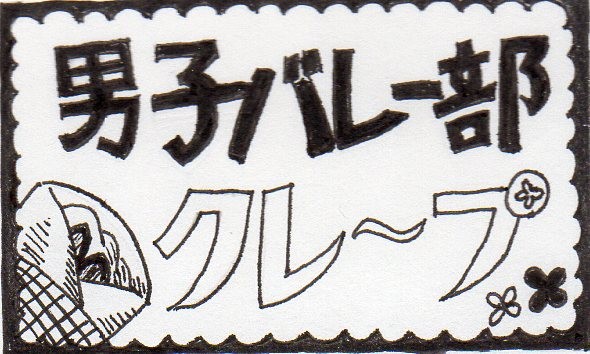 男子バレー部
クレ〜プ